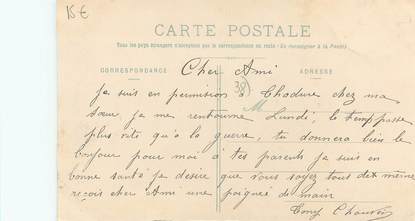 15 €
CARTE POSTALE
Tous les pays étrangers n'acceptent pas la correspondance au recto (Se renseigner à la Poste)
CORRESPONDANCE
ADRESSE
Cher Ami
Je suis en permision à Chadure chez ma
sœur, je me rentourne Lundi, le temp passe
plus vite qu'a la guerre, tu donnera bien le
bonjour pour moi a tes parents Je suis en
bonne santé je desire que vous soyez tout de même
reçois cher Ami une poigné de main
Tony